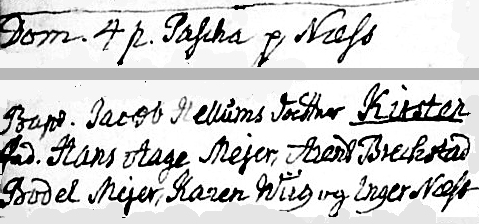 Dom. 4 p. Pascha p Næss
Bapt. Jacob Hellums dotter Kirsten
fad. Hans Aage Mejer, Arend Brechstad
Bodel Mejer, Karen Wiig og Inger Næss